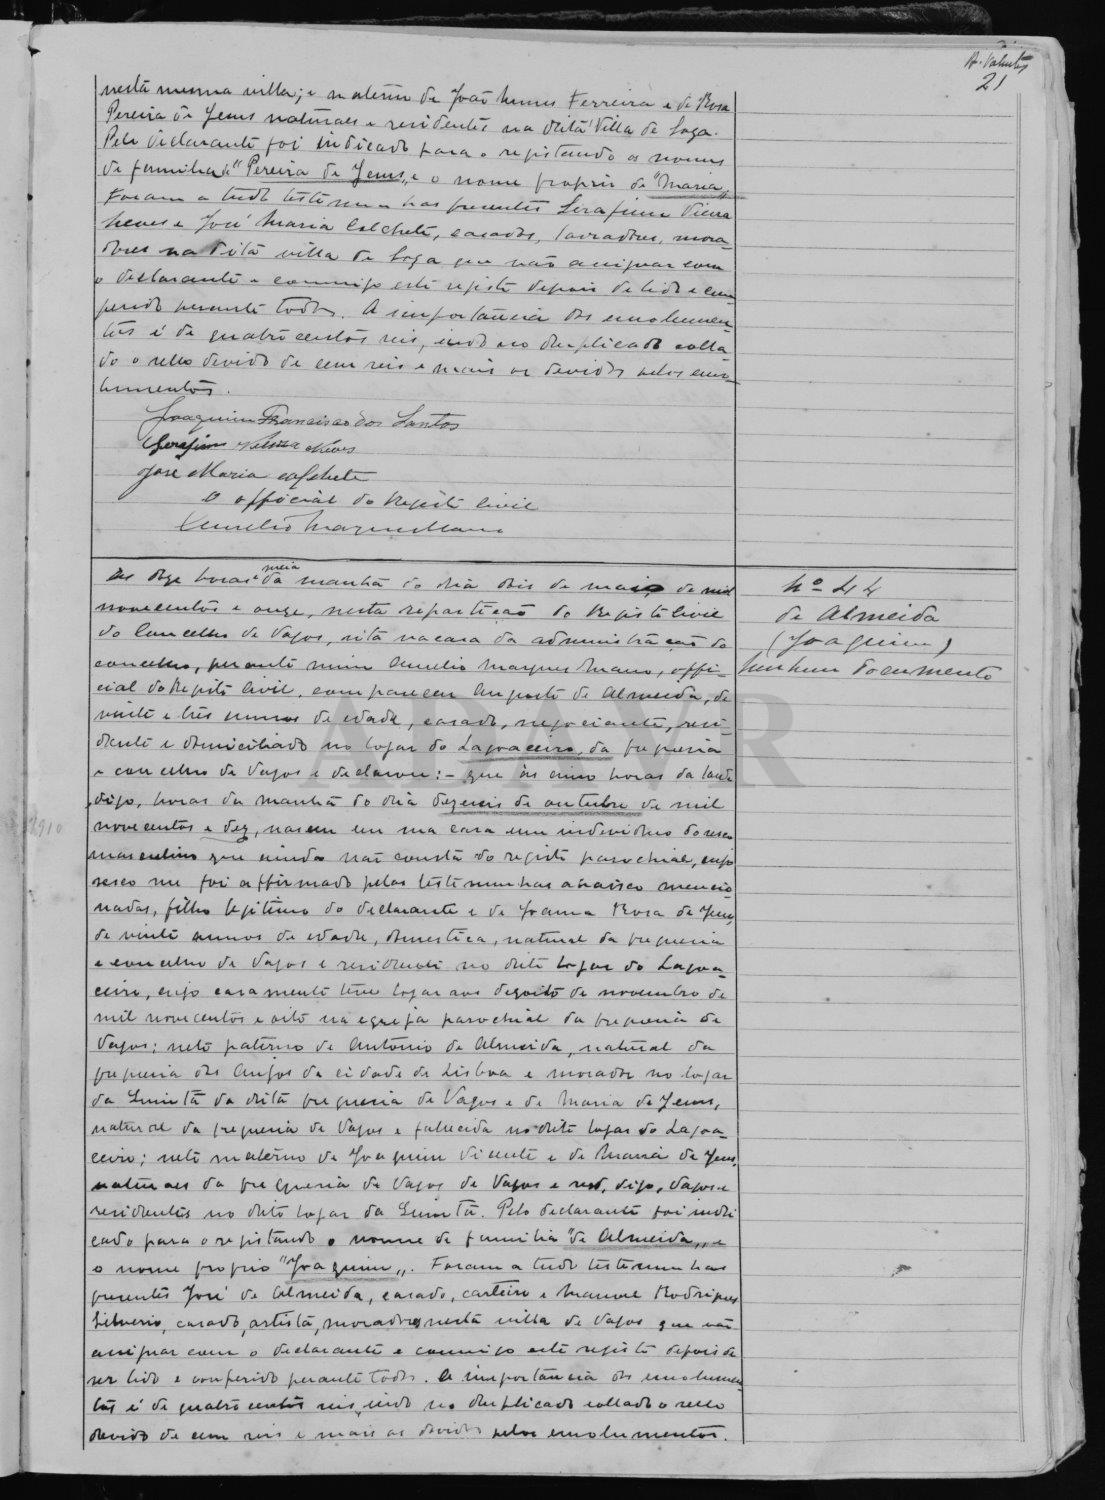 A. Valente
21
nesta mesma villa; e materno de João Nunes Ferreira e de Rosa
Pereira de Jesus naturaes e residentes na dita Villa de Soza.
Pelo declarante foi indicado para o registando os nomes
de familia de "Pereira de Jesus" e o nome proprio de "Maria".
Foram a tudo testemunhas presentes Serafim Vieira
Neves e José Maria Calchete, casados, lavradores, mora-
dores na dita villa de Soza que vão assignar com
o declarante e commigo este registo depois de lido e con-
ferido perante todos. A importancia dos emolumen-
tos é de quatrocentos reis, indo no duplicado colla-
do o sello devido de cem reis e mais os devidos pelos emo-
lumentos.
Joaquim Francisco dos Santos
Serafim Vieira Neves
José Maria Calchete
O official do Registo Civil
Aurelio Marques Mano
Nº 44
de Almeida
(Joaquim)
Nenhum documento
Ás doze horas e meia da manhã do dia dois de maio de mil
novecentos e onze, nesta repartição do Registo Civil
do Concelho de Vagos, sita na casa da administração do
concelho, perante mim Aurelio Marques Mano, offi-
cial do Registo Civil, compareceu Augusto de Almeida, de
vinte e três annos de edade, casado, negociante, resi-
dente e domiciliado no logar do Lagoaceiro, da freguesia
e concelho de Vagos e declarou: - que ás cinco horas da tarde
digo, horas da manhã do dia dezeseis de outubro de mil
1910
novecentos e dez, nasceu em uma casa um individuo do sexo
masculino que ainda não consta do registo parochial, cujo
sexo me foi affirmado pelas testemunhas abaixo mencio-
nadas, filho legitimo do declarante e de Joanna Rosa de Jesus,
de vinte annos de edade, domestica, natural da freguesia
e concelho de Vagos e residente no dito logar do Lagoa-
ceiro, cujo casamento teve logar aos dezoito de novembro de
mil novecentos e oito na egreja parochial da freguesia de
Vagos; neto paterno de Antonio de Almeida, natural da
freguesia dos Anjos da cidade de Lisboa e morador no logar
da Quintã da dita freguesia de Vagos e de Maria de Jesus,
natural da freguesia de Vagos e fallecida no dito logar do Lagoa-
ceiro; neto materno de Joaquim Vicente e de Maria de Jesus,
naturaes da freguesia de Vagos de Vagos e resd, digo, Vagos e
residentes no dito logar da Quintã. Pelo declarante foi indi-
cado para o registando o nome de familia "de Almeida" e
o nome proprio "Joaquim". Foram a tudo testemunhas
presentes José de Almeida, casado, carteiro e Manoel Rodrigues
Silverio, casado, artista, moradores nesta villa de Vagos que vão
assignar com o declarante e commigo este registo depois de
ser lido e conferido perante todos. A importancia dos emolumen-
tos é de quatrocentos reis, indo no duplicado collado o sello
devido de cem reis e mais os devidos pelos emolumentos.
ADAVR